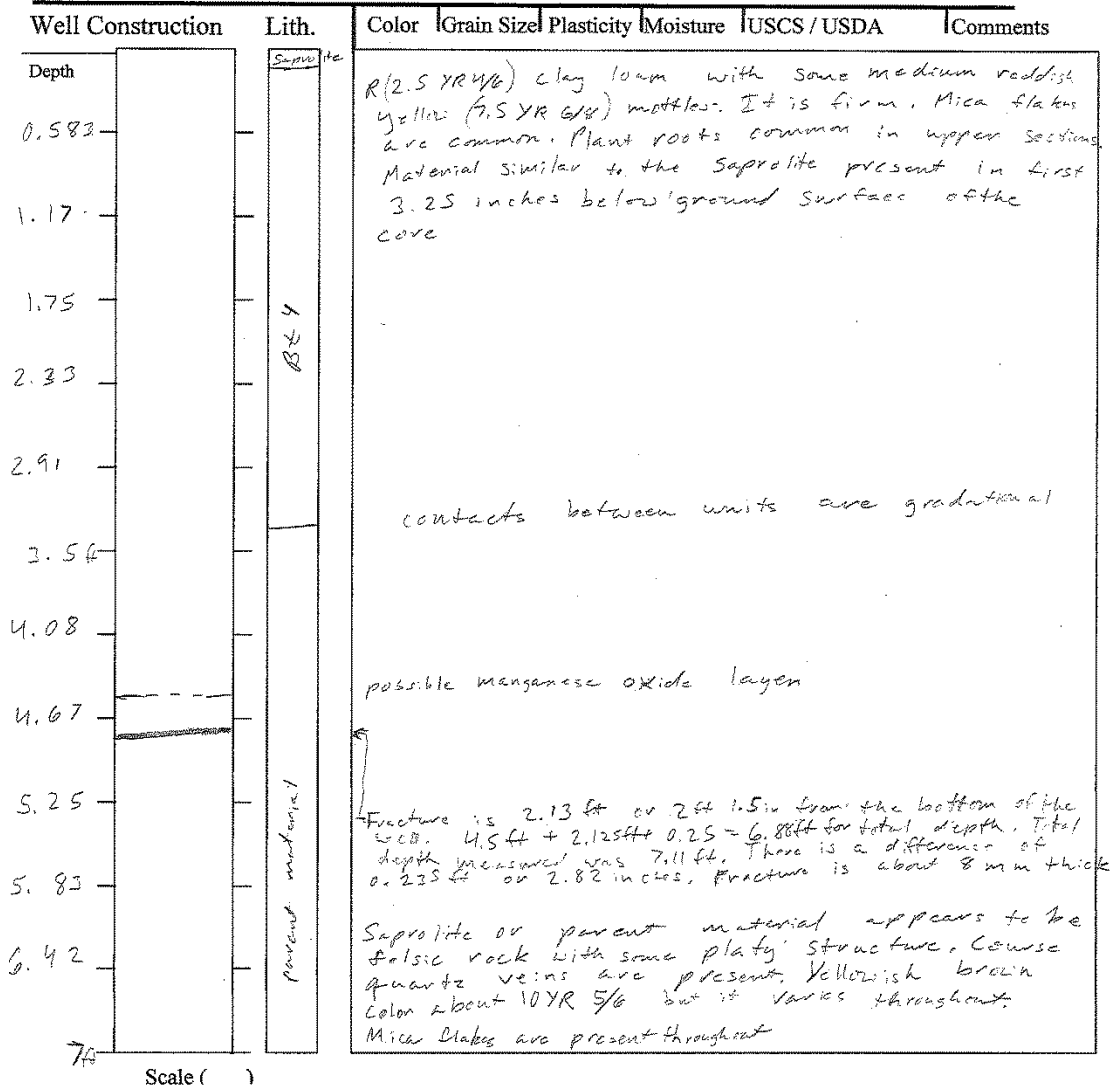 Well Construction Lith. Color Grain Size Plasticity Moisture USCS / USDA Comments
Depth
Saprolite
R (2.5 YR 4/6) clay loam with some medium reddish
yellow (7.5 YR 6/8) mottles. It is firm. Mica flakes
are common. Plant roots common in upper sections.
Material similar to the saprolite present in first
3.25 inches below ground surface of the
core
0.583
1.17
1.75
Bt 4
2.33
2.91
contacts between units are gradational
3.5 ft
4.08
possible manganese oxide layer
4.67
5.25
parent material
Fracture is 2.13 ft or 2 ft 1.5 in from the bottom of the
4.5 ft + 2.125 ft + 0.25 = 6.88 ft for total depth. Total
depth measured was 7.11 ft. There is a difference of
0.235 ft or 2.82 inches. Fracture is about 8 mm thick
5.83
Saprolite or parent material appears to be
felsic rock with some platy structure. Course
quartz veins are present. Yellowish brown
color about 10 YR 5/6 but it varies throughout.
Mica flakes are present throughout
6.42
7 ft
Scale ( )